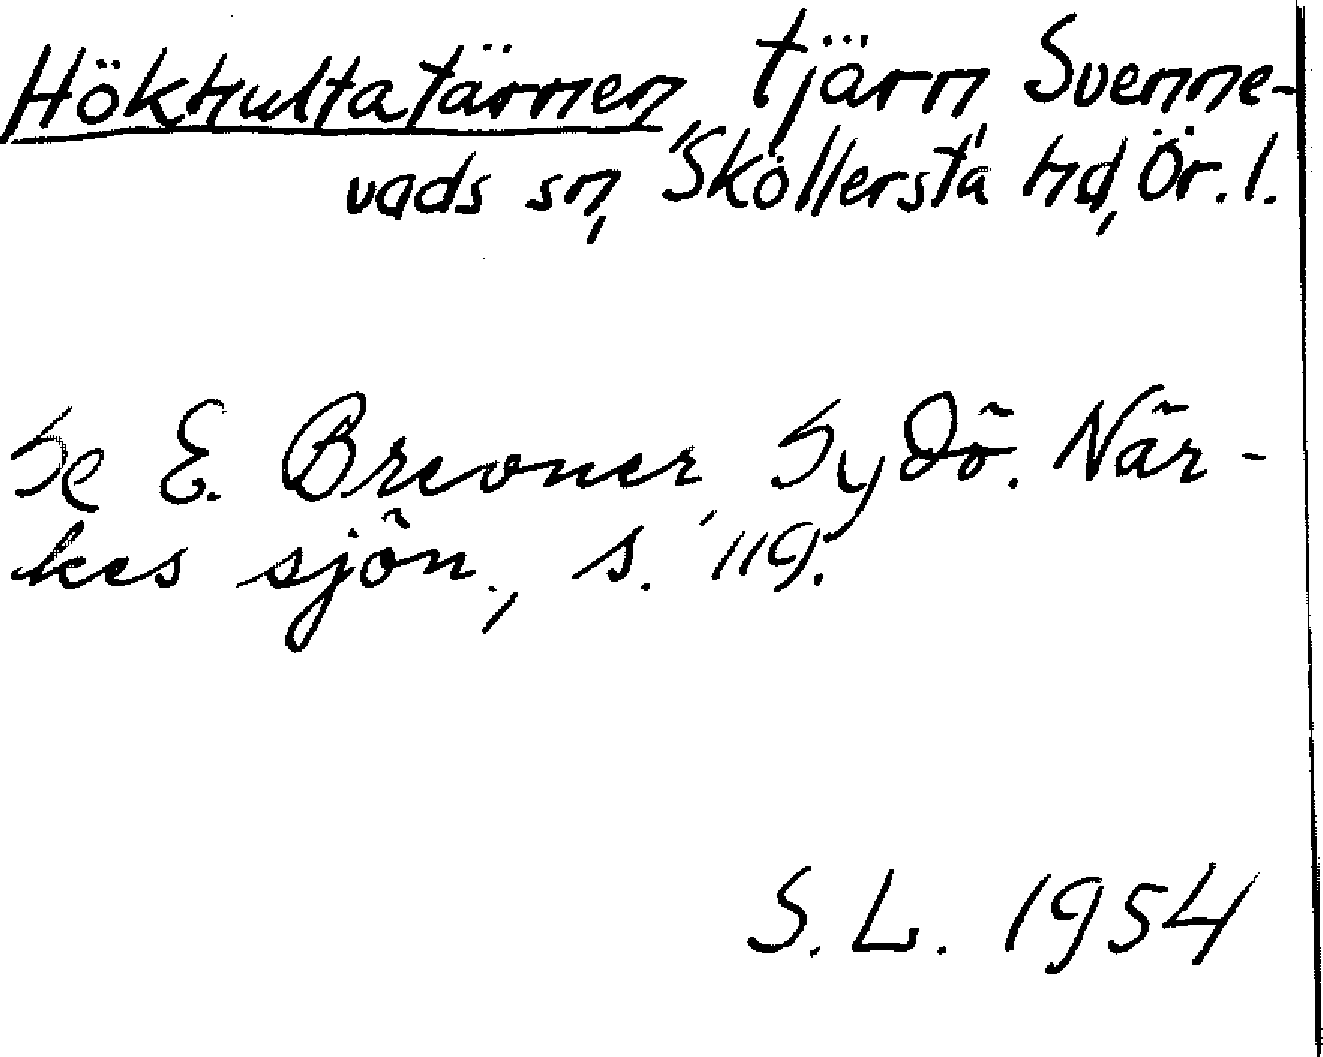 Hökhultatärnen, tjärn, Svenne-
vads sn, Sköllersta hd, Ör. l.
Se E. Brevner, Sydö. När-
kes sjön., s. 119.
S. L. 1954